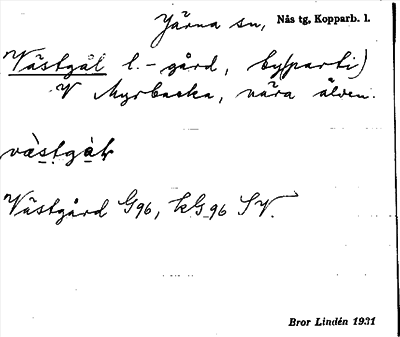 Järna sn, Nås tg, Kopparb. l.
Västgål l. -gård, by(parti)
V Myrbacka, nära älven.
västgàḷ
Västgård G96, kG 96 SV.
Bror Lindén 1931